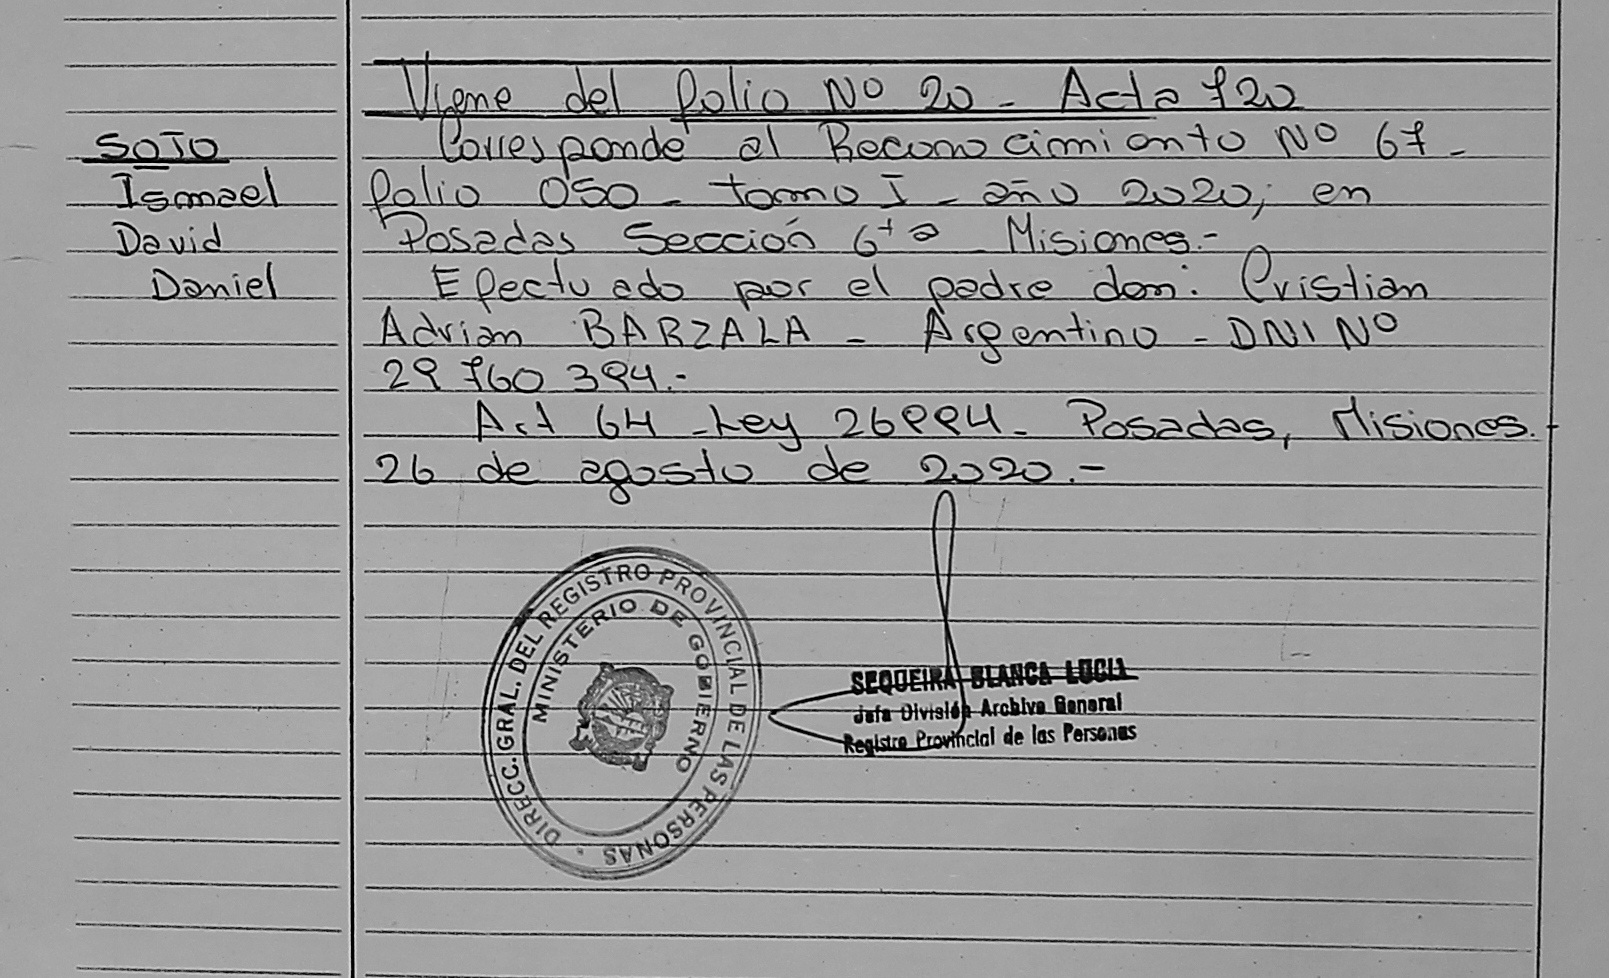 Viene del folio Nº 20 - Acta 720
SOTO
Ismael
David
Daniel
Corresponde al Reconocimiento Nº 67 -
folio 050 - tomo I - año 2020, en
Posadas Sección 6ta Misiones.-
Efectuado por el padre don: Cristian
Adrian BARZALA - Argentino - DNI Nº
29 760 394.-
Art 64 - Ley 26994 - Posadas, Misiones.
26 de agosto de 2020.-
DIRECC. GRAL. DEL REGISTRO PROVINCIAL DE LAS PERSONAS
MINISTERIO DE GOBIERNO
SEQUEIRA BLANCA LUCIA
Jefa División Archivo General
Registro Provincial de las Personas